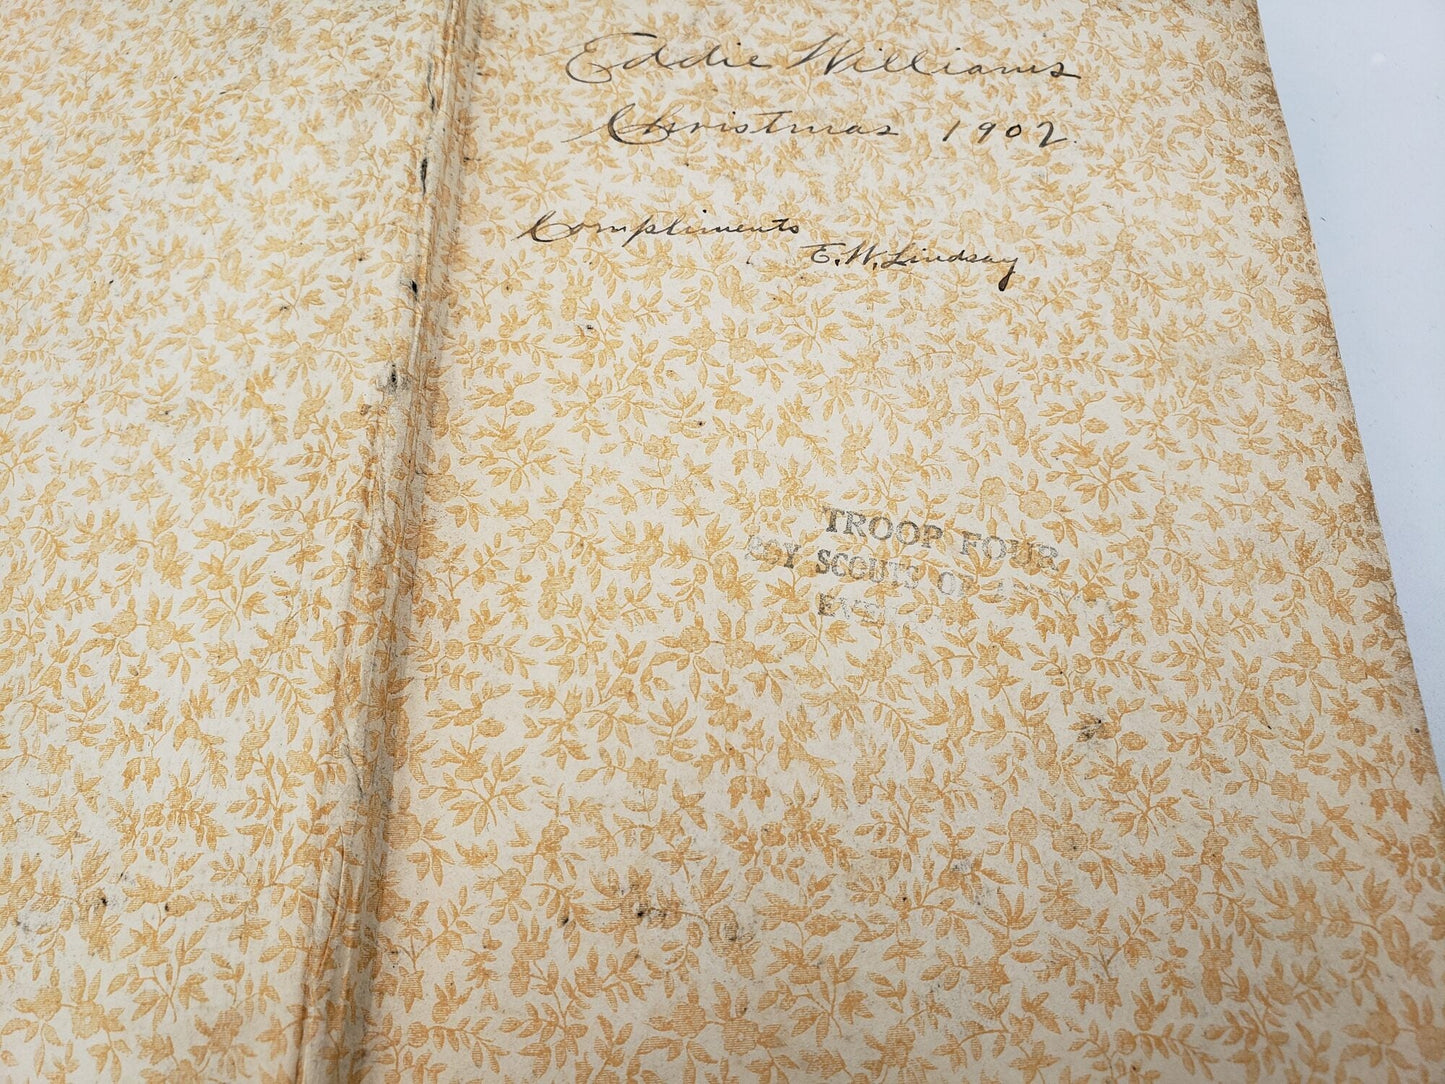 Eddie Williams
Christmas 1902.
Compliments
E. W. Lindsay
TROOP FOUR
BOY SCOUTS OF